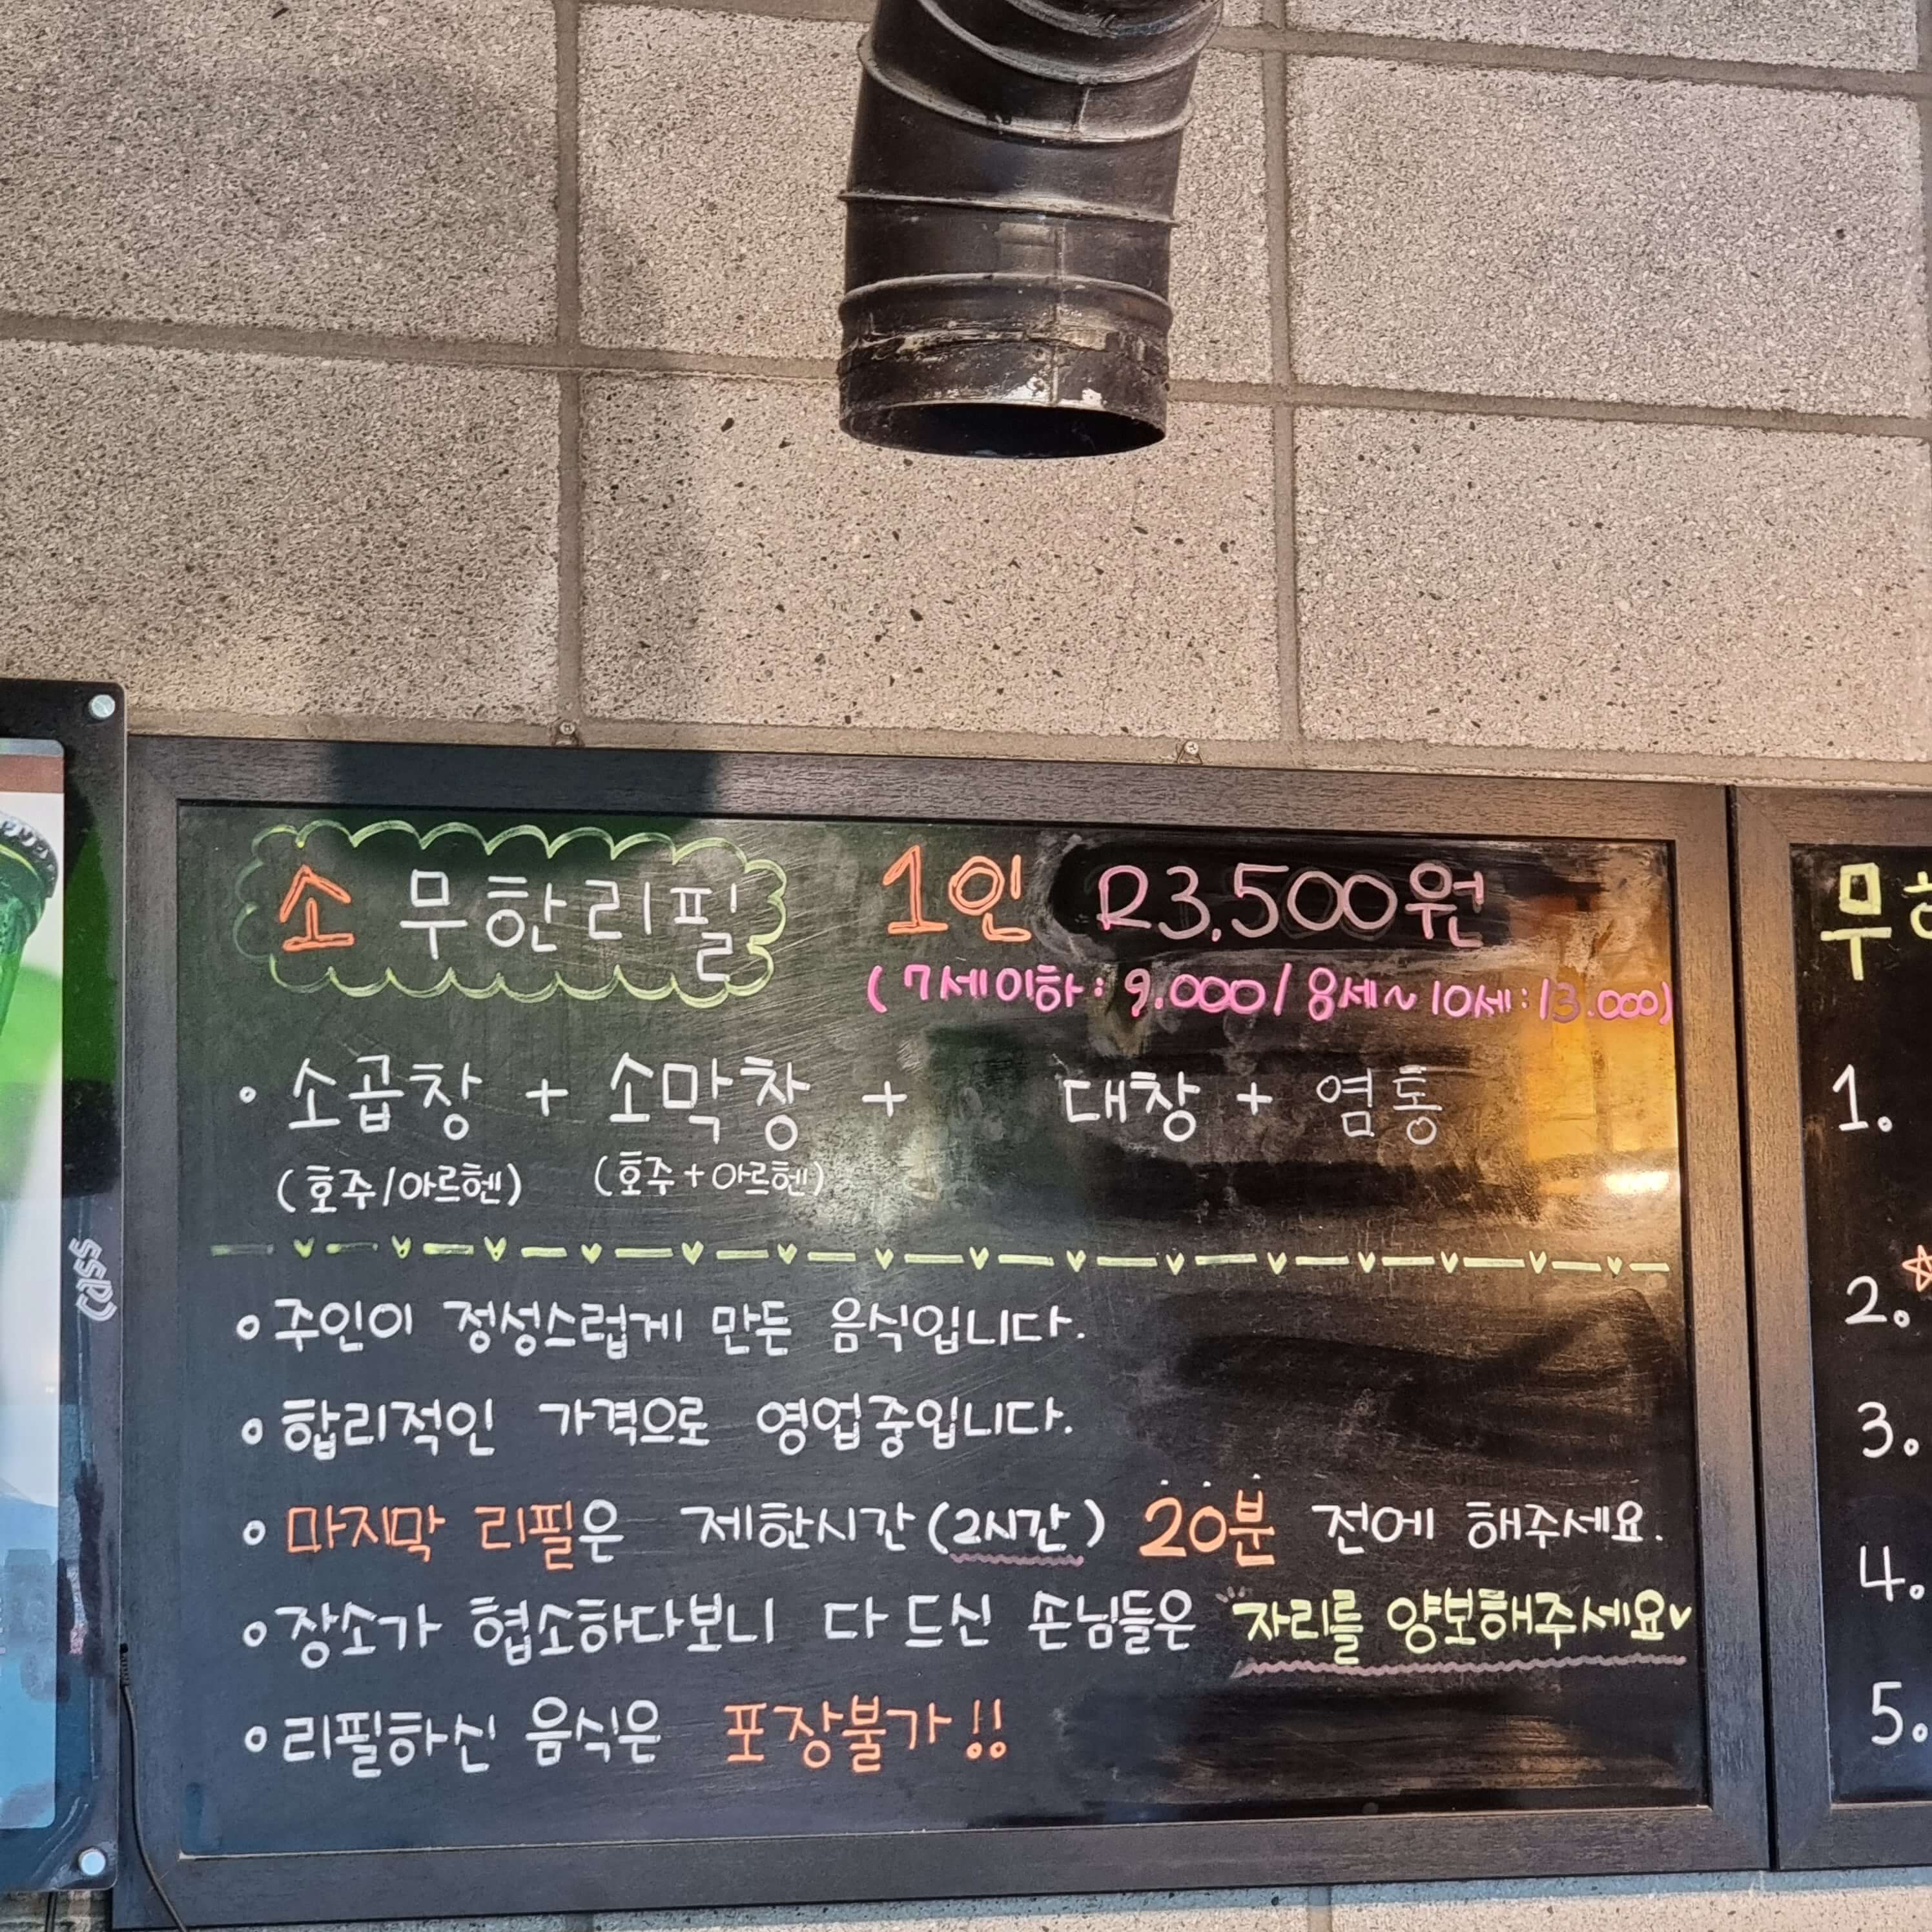 소 무한리필 1인 23,500원
(7세이하: 9.000/8세~10세:13.000)
• 소곱창 + 소막창 + 대창 + 염통
(호주/아르헨) (호주+아르헨)
주인이 정성스럽게 만든 음식입니다.
합리적인 가격으로 영업중입니다.
마지막 리필은 제한시간(2시간) 20분 전에 해주세요.
장소가 협소하다보니 다 드신 손님들은 자리를 양보해주세요
리필하신 음식은 포장불가!!
Cass
무
1.
2.
3.
4.
5.